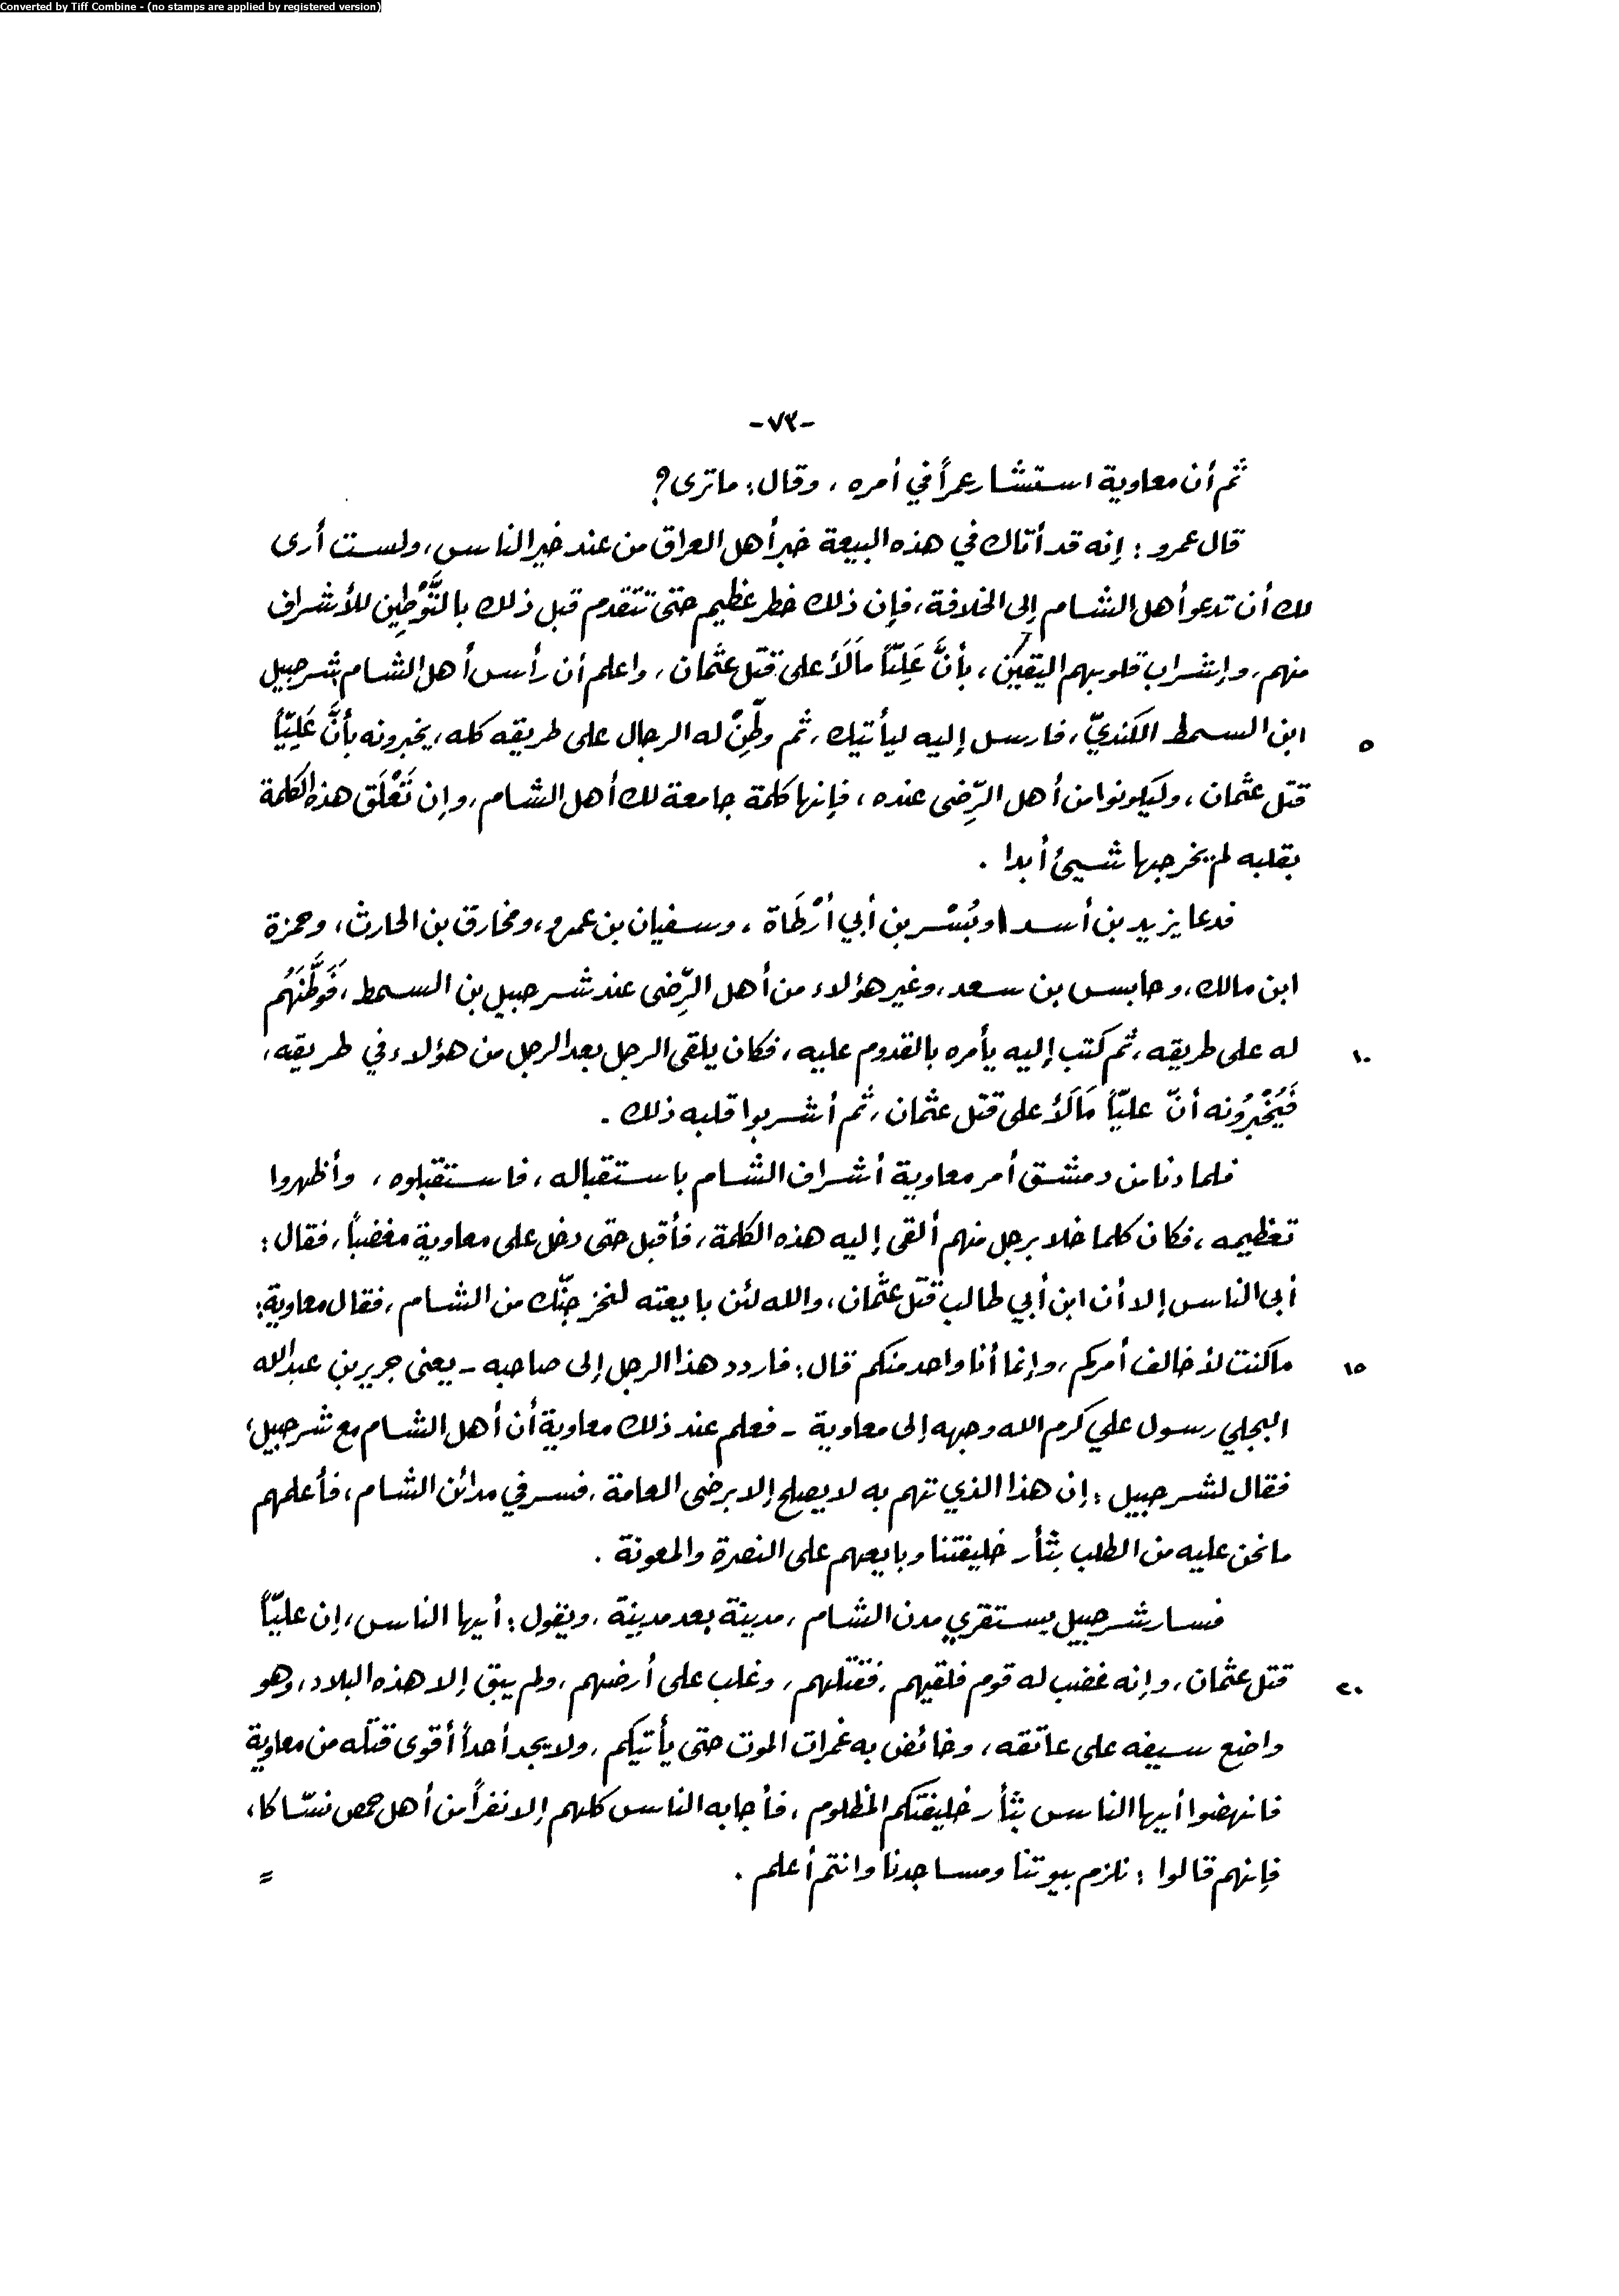 Converted by Tiff Combine - (no stamps are applied by registered version)
-٧٣-
ثم أن معاوية استشار عمراً في أمره، وقال: ما ترى؟
قال عمرو: إنه قد أتاك في هذه البيعة خبر أهل العراق من عند خير الناس، ولست أرى
لك أن تدعو أهل الشام إلى الخلافة، فإن ذلك خطر عظيم حتى تتقدم قبل ذلك بالتَّوْطِين للأشراف
منهم، وإشراب قلوبهم اليقين، بأنَّ عَلِيّاً مَالَأَ على قتل عثمان، واعلم أن رأس أهل الشام شرحبيل
ابن السمط الكنديّ، فارسل إليه ليأتيك، ثم وطِّنْ له الرجال على طريقه كله، يخبرونه بأنَّ عَلِيّاً
٥
قتل عثمان، وليكونوا من أهل الرِّضى عنده، فإنها كلمة جامعة لك أهل الشام، وإن تَعْلَق هذه الكلمة
بقلبه لم يخرجها شيئ أبدا.
فدعا يزيد بن أسد، وبُسْر بن أبي أرْطَاة، وسفيان بن عمرو، ومخارق بن الحارث، وحمزة
ابن مالك، وحابس بن سعد، وغير هؤلاء من أهل الرِّضى عند شرحبيل بن السمط، فَوَطَّنَهُم
له على طريقه، ثم كتب إليه يأمره بالقدوم عليه، فكان يلقى الرجل بعد الرجل من هؤلاء في طريقه،
١٠
فَيُخْبِرُونه أنّ عليّاً مَالَأَ على قتل عثمان، ثم أشربوا قلبه ذلك.
فلما دنا من دمشق أمر معاوية أشراف الشام باستقباله، فاستقبلوه، وأظهروا
تعظيمه، فكان كلما خلا برجل منهم ألقى إليه هذه الكلمة، فأقبل حتى دخل على معاوية مغضباً، فقال:
أبى الناس إلا أن ابن أبي طالب قتل عثمان، والله لئن بايعته لنخرجنّك من الشام، فقال معاوية:
ما كنت لأخالف أمركم، وإنما أنا واحد منكم قال: فاردد هذا الرجل إلى صاحبه - يعني جرير بن عبد الله
١٥
البجلي رسول علي كرم الله وجهه إلى معاوية - فعلم عند ذلك معاوية أن أهل الشام مع شرحبيل،
فقال لشرحبيل: إن هذا الذي تهم به لا يصلح إلا برضى العامة، فسر في مدائن الشام، فأعلمهم
ما نحن عليه من الطلب بثأر خليفتنا وبايعهم على النصرة والمعونة.
فسار شرحبيل يستقري مدن الشام، مدينة بعد مدينة، ويقول: أيها الناس، إن عليّاً
قتل عثمان، وإنه غضب له قوم فلقيهم، فقتلهم، وغلب على أرضهم، ولم يبق إلا هذه البلاد، وهو
٢٠
واضع سيفه على عاتقه، وخائض به غمرات الموت حتى يأتيكم، ولا يجد أحداً أقوى قتله من معاوية
فانهضوا أيها الناس بثأر خليفتكم المظلوم، فأجابه الناس كلهم إلا نفراً من أهل حمص نسّاكا،
فإنهم قالوا: نلزم بيوتنا ومساجدنا وانتم أعلم.
=